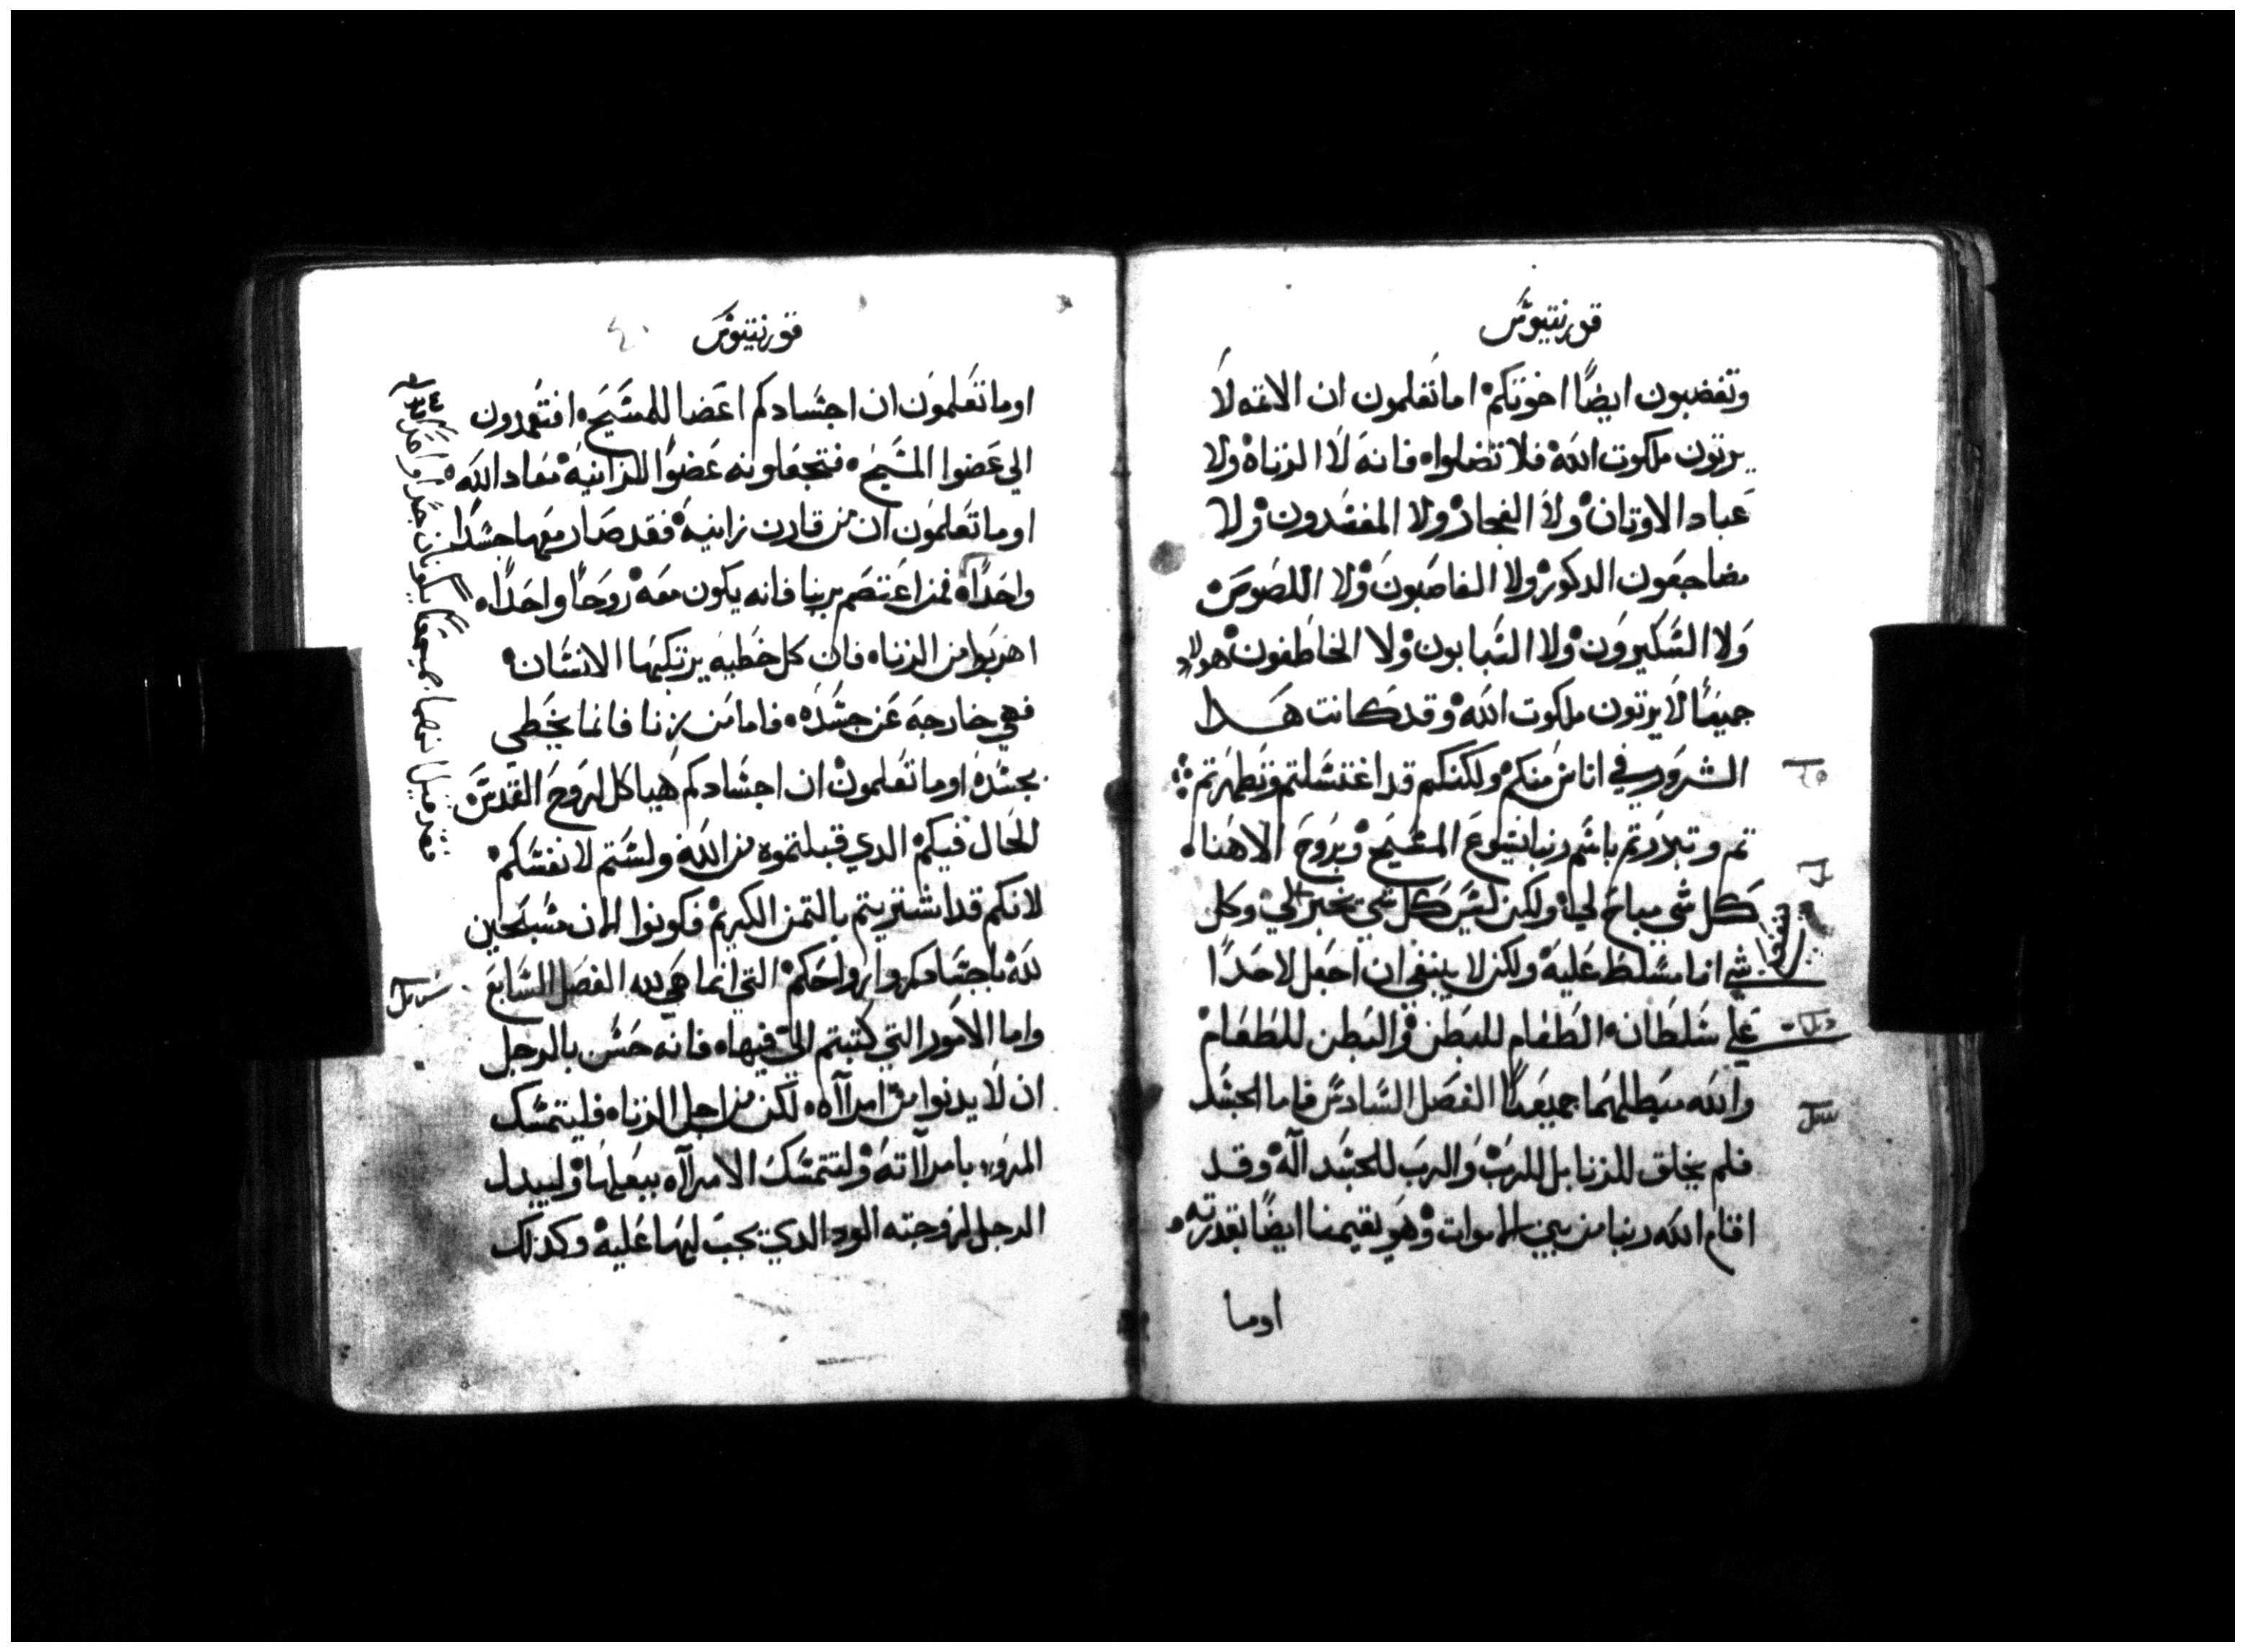 قورنتيوس
وتغضبون ايضًا اخوتكم اما تعلمون ان الاتمه لا
يرتون ملكوت الله فلا تضلوا فانه لا الزناه ولا
عباد الاوتان ولا الفجار ولا المفسدون ولا
مضاجعون الدكور ولا الغاصبون ولا اللصوص
ولا السكيرون ولا السبابون ولا الخاطفون هولاء
جميعًا لا يرتون ملكوت الله وقد كانت هدا
الشرور في اناس منكم ولكنكم قد اغتسلتم وتطهرتم
تم وتبررتم باسم ربنا يسوع المسيح وبروح الاهنا
كل شي مباح لي ولكن ليس كل شي بخير لي وكل
شي انا مسلط عليه ولكن لا ينبغي ان اجعل لاحدًا
علي سلطانه الطعام للبطن والبطن للطعام
والله مبطلهما جميعًا الفصل السادس فاما الجسد
فلم يخلق للزنا بل للرب والرب للجسد اله وقد
اقام الله ربنا من بين الاموات وهو يقيمنا ايضًا بقدرته
اوما
قورنتيوس
اوما تعلمون ان اجسادكم اعضا للمسيح افتعمدون
الي عضوا المسيح فتجعلونه عضوًا للزانيه معاد الله
اوما تعلمون ان من قارن زانيه فقد صار معها جسدًا
واحدًا فمن اعتصم بربنا فانه يكون معه روحًا واحدًا
اهربوا من الزناه فان كل خطيه يرتكبها الانسان
فهي خارجه عن جسده فاما من يزنا فانما يخطي
بجسده اوما تعلمون ان اجسادكم هياكل لروح القدس
الحال فيكم الدي قبلتموه من الله ولستم لانفسكم
لانكم قد اشتريتم بالتمن الكريم فكونوا الان مسبحين
لله باجسادكم وارواحكم التي انما هي لله الفصل السابع
واما الامور التي كتبتم الي فيها فانه حسن بالرجل
ان لا يدنوا من امراه لكن من اجل الزناه فليتمسك
المرو بامراته ولتتمسك الامراه ببعلها وليبدل
الرجل لزوجته الود الدي يجب لها عليه وكدلك